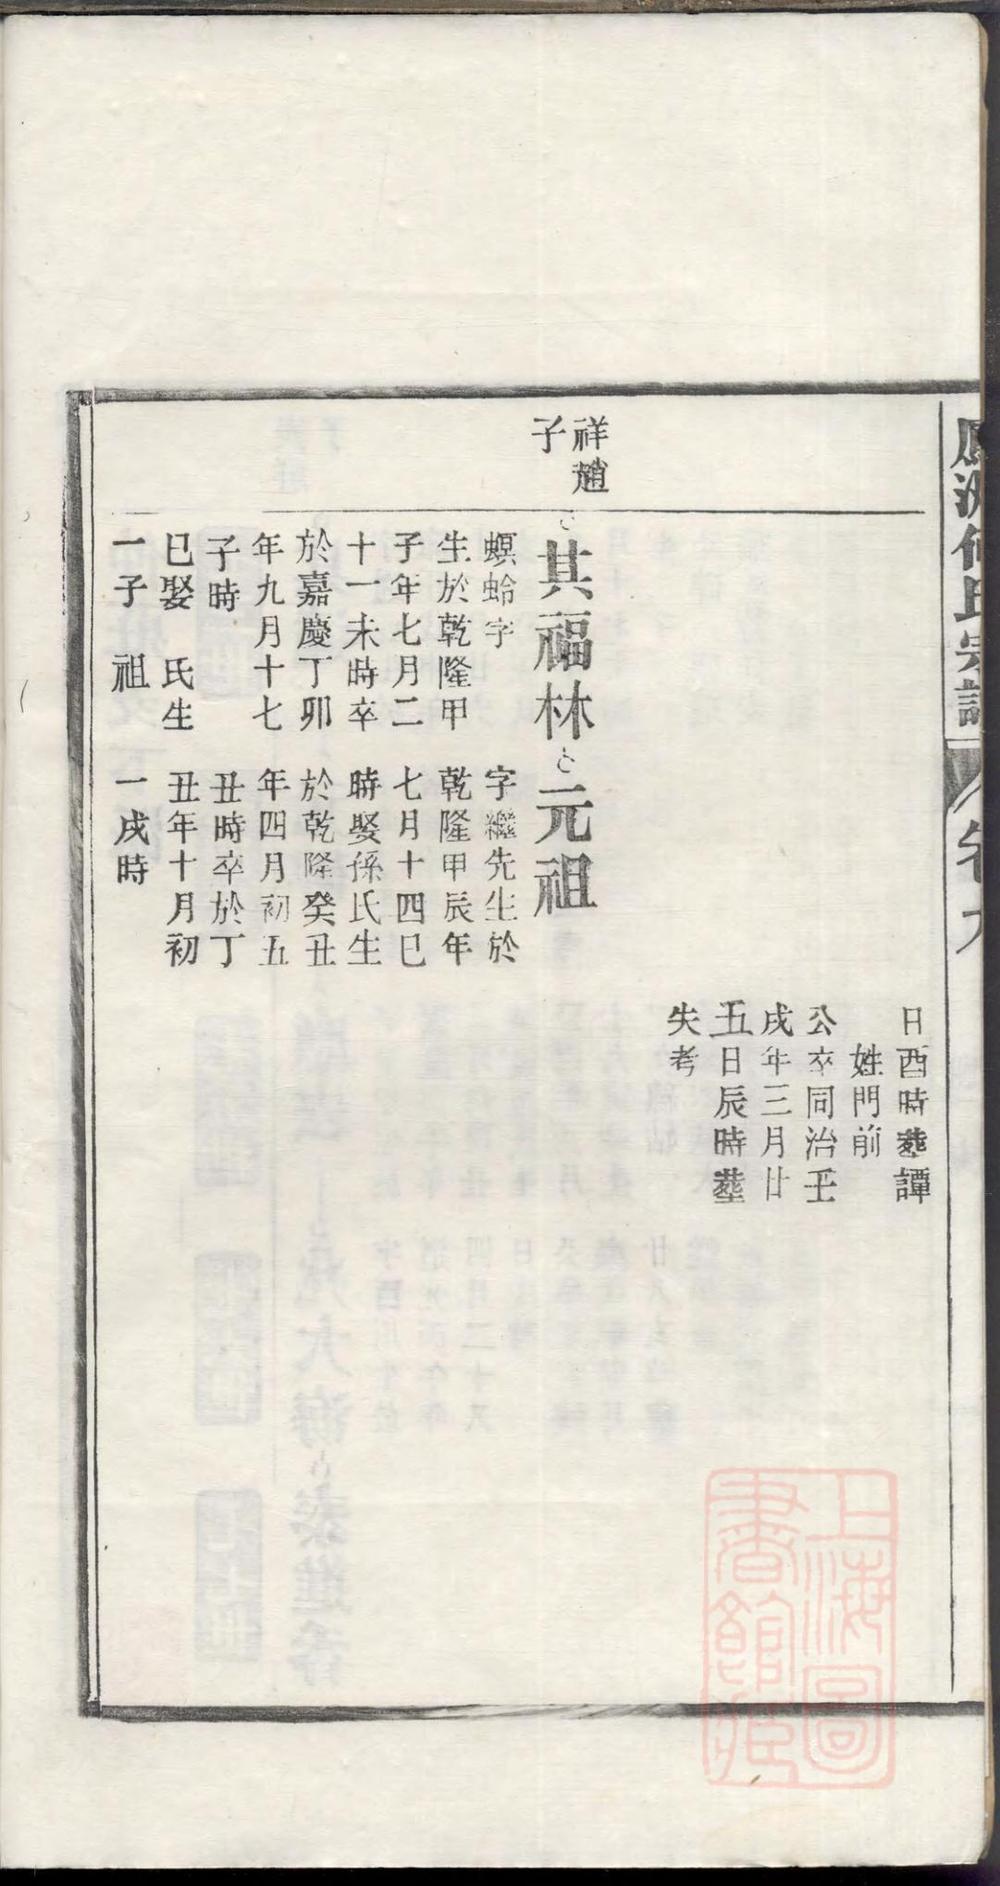 何氏宗譜
卷九
日酉時塟譚
姓門前
公卒同治壬
戌年三月廿
五日辰時塟
失考
祥趙
子
其福林
螟蛉字
生於乾隆甲
子年七月二
十一未時卒
於嘉慶丁卯
年九月十七
子時
巳娶 氏生
一子 祖
元祖
字繼先生於
乾隆甲辰年
七月十四巳
時娶孫氏生
於乾隆癸丑
年四月初五
丑時卒於丁
丑年十月初
一戌時
上海圖
書館藏